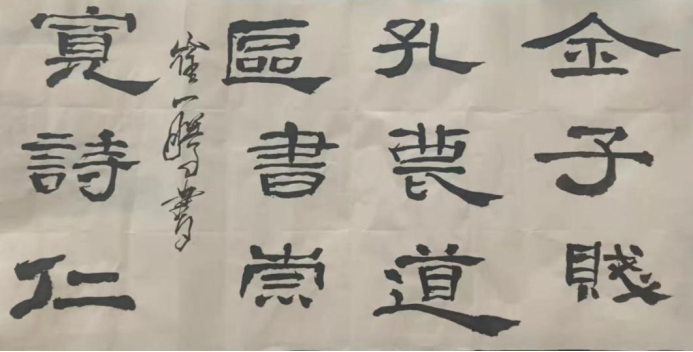 金子賤
孔道
區書崇
崔一鵬書
詩仁